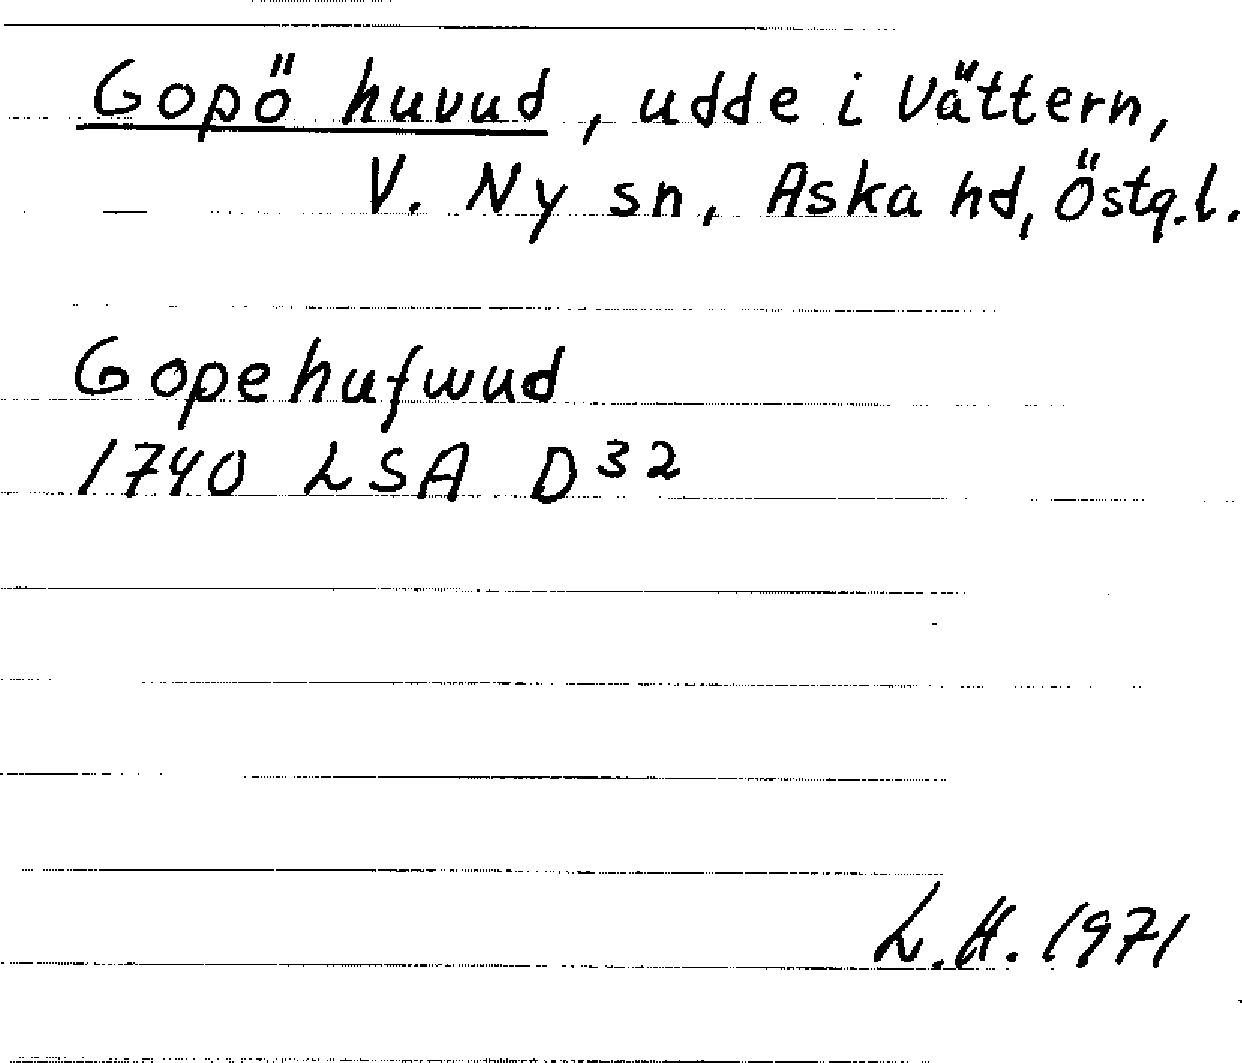 Gopö huvud, udde i Vättern,
V. Ny sn, Aska hd, Östg.l.
Gopehufwud
1740 LSA D³²
L.H. 1971